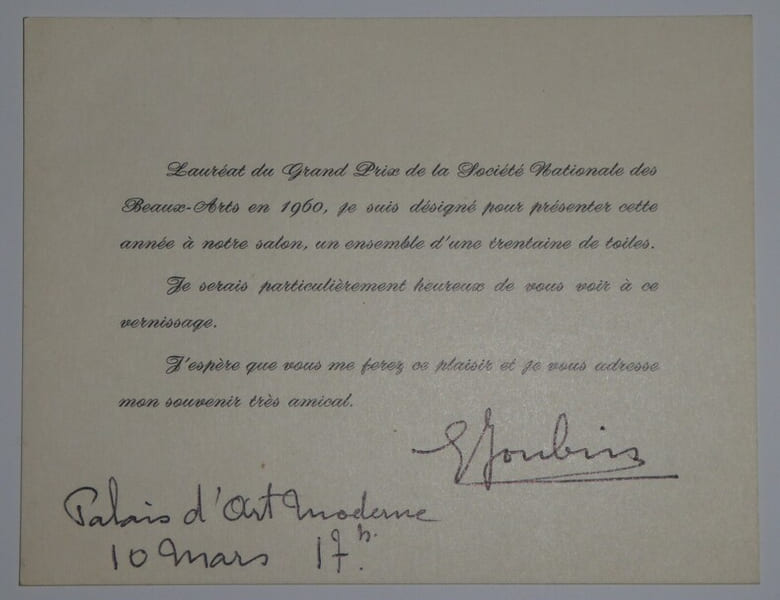 Lauréat du Grand Prix de la Société Nationale des
Beaux-Arts en 1960, je suis désigné pour présenter cette
année à notre salon, un ensemble d'une trentaine de toiles.
Je serais particulièrement heureux de vous voir à ce
vernissage.
J'espère que vous me ferez ce plaisir et je vous adresse
mon souvenir très amical.
G Joubin
Palais d'Art Moderne
10 Mars 17h.